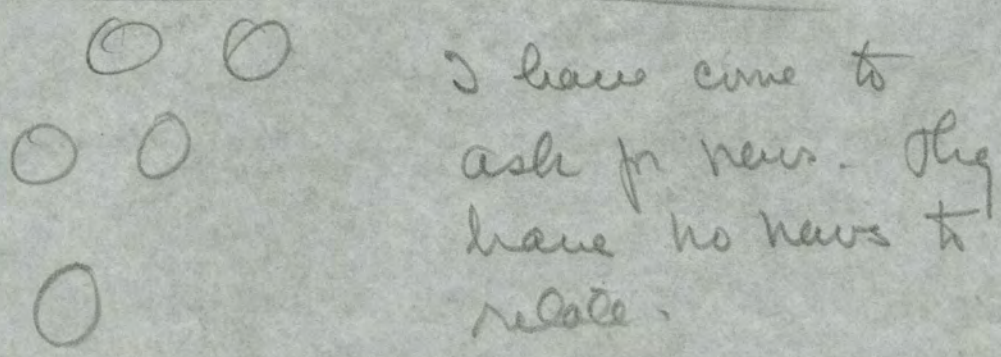 I have come to
ask for news. They
have no news to
relate.